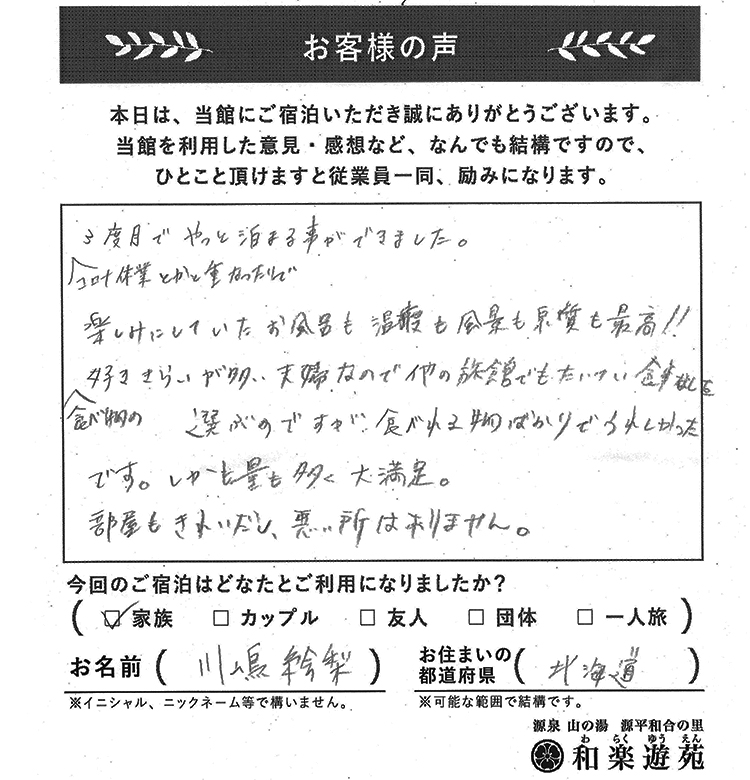 お客様の声
本日は、当館にご宿泊いただき誠にありがとうございます。
当館を利用した意見・感想など、なんでも結構ですので、
ひとこと頂けますと従業員一同、励みになります。
3度目でやっと泊まる事ができました。
コロナ休業とかと重なったりで
楽しみにしていたお風呂も温度も風景も泉質も最高!!
好ききらいが多い夫婦なので他の旅館でもたいてい食事なしを
食べ物の
選ぶのですが、食べれる物ばかりでうれしかった
です。しかも量も多く大満足。
部屋もきれいだし、悪い所はありません。
今回のご宿泊はどなたとご利用になりましたか?
(☑ 家族 □ カップル □ 友人 □ 団体 □ 一人旅 )
お名前 ( 川嶋 絵梨 )
お住まいの
都道府県 ( 北海道 )
※イニシャル、ニックネーム等で構いません。
※可能な範囲で結構です。
源泉 山の湯 源平和合の里
わ らく ゆう えん
和楽遊苑